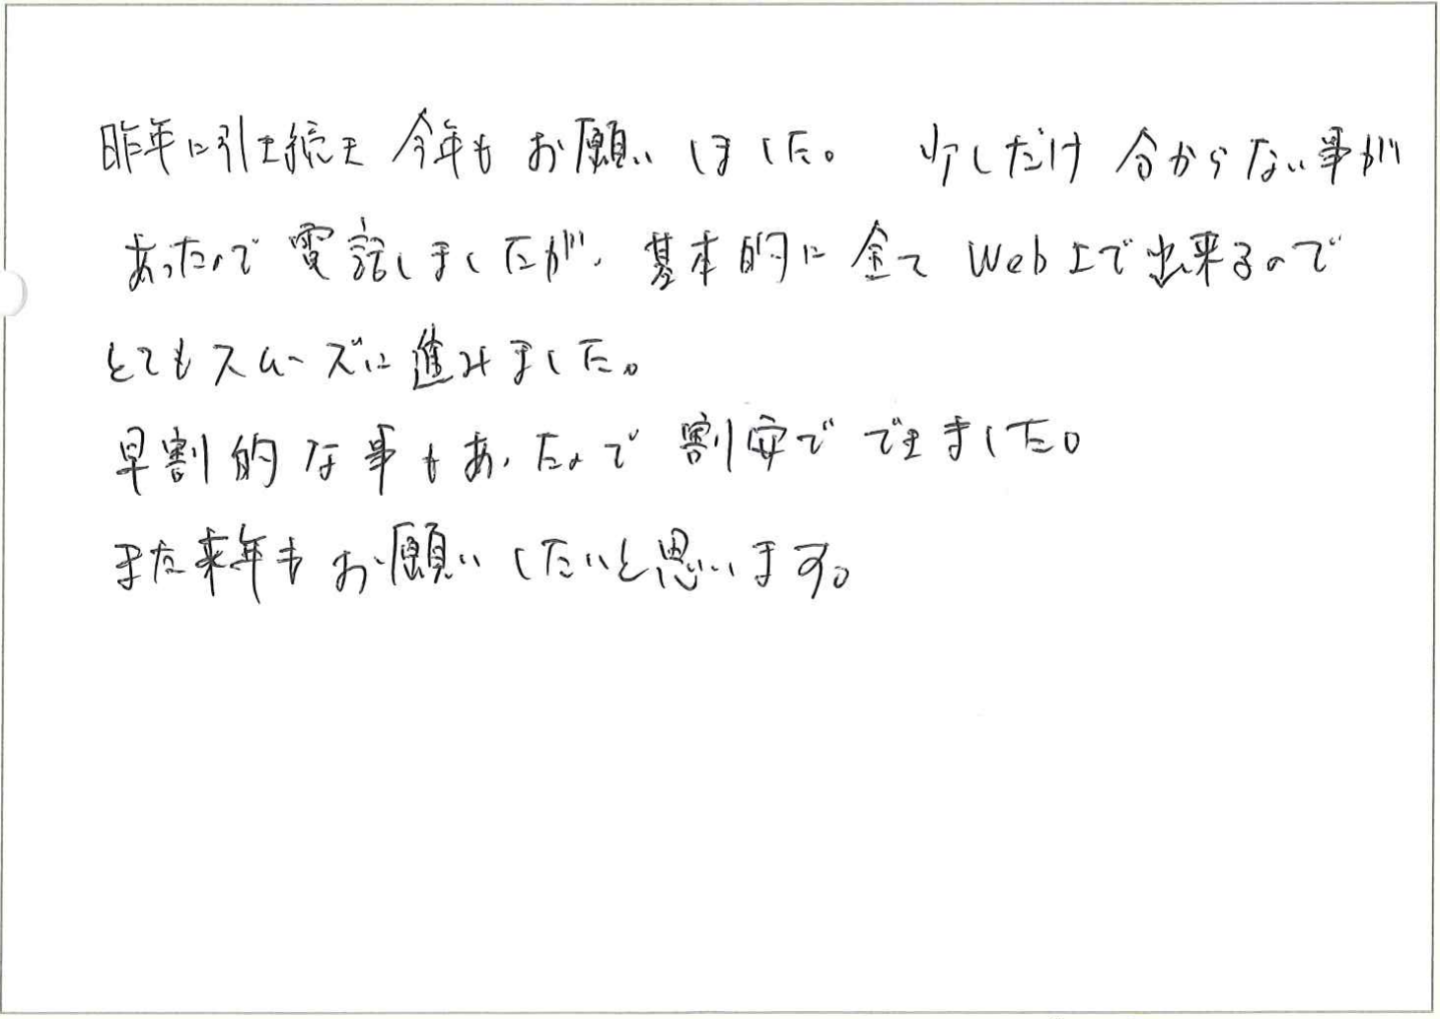 昨年に引き続き 今年も お願い しました。 少しだけ 分からない事が
あったので 電話しましたが、基本的に 全て Web上で出来るので
とてもスムーズに進みました。
早割的な事もあったので 割安で できました。
また来年も お願いしたいと思います。